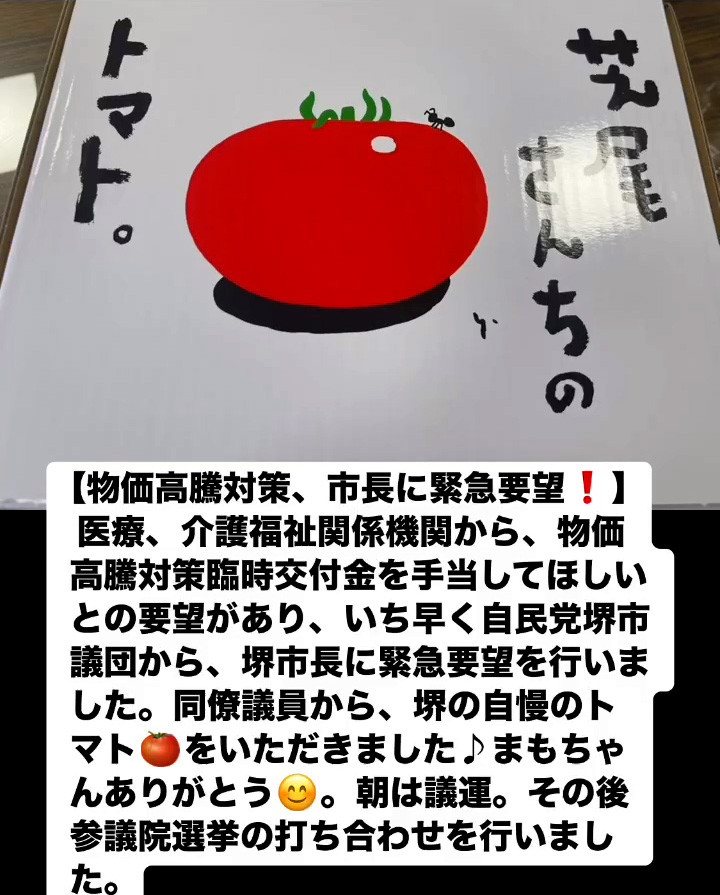 芝尾
さんちの
トマト。
【物価高騰対策、市長に緊急要望❗】
医療、介護福祉関係機関から、物価
高騰対策臨時交付金を手当してほしい
との要望があり、いち早く自民党堺市
議団から、堺市長に緊急要望を行いま
した。同僚議員から、堺の自慢のト
マト🍅をいただきました♪まもちゃ
んありがとう😊。朝は議運。その後
参議院選挙の打ち合わせを行いまし
た。